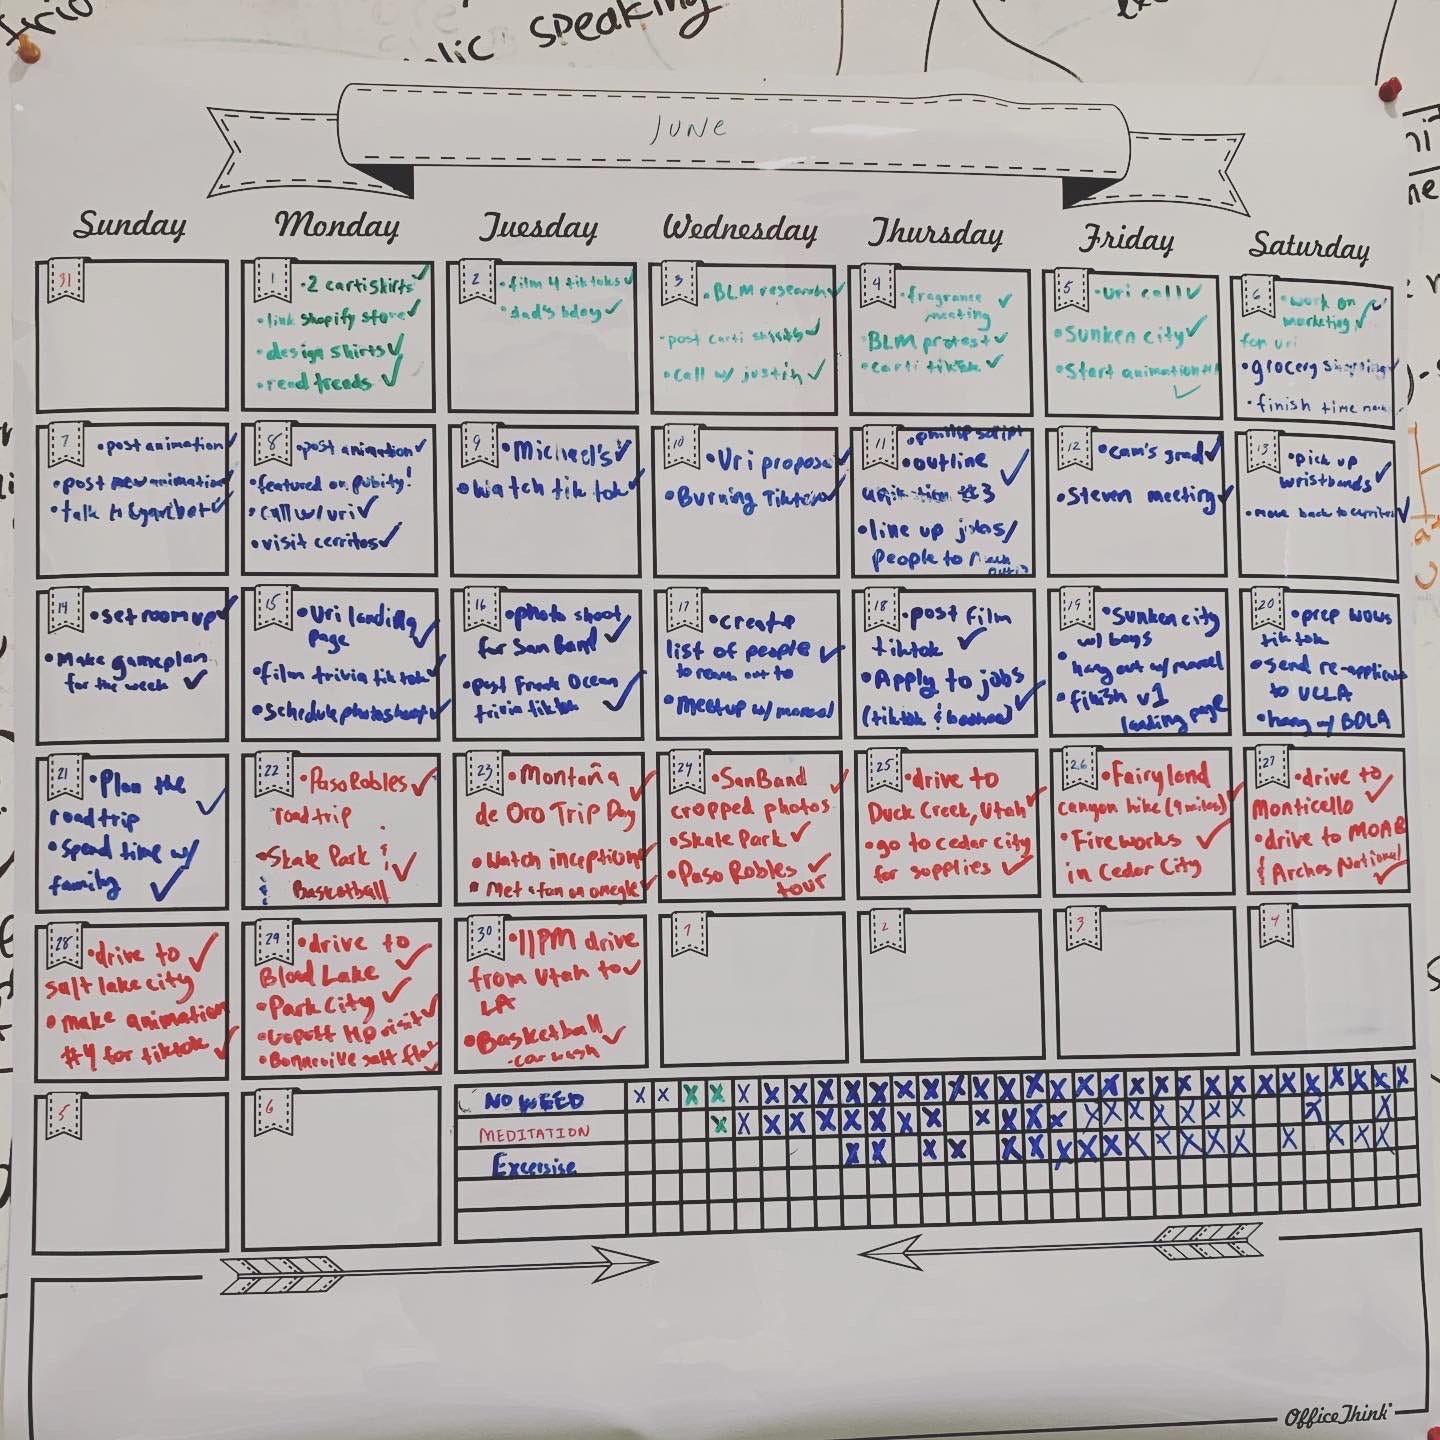 speaking
JUNE
Sunday Monday Tuesday Wednesday Thursday Friday Saturday
31
1 • 2 carti shirts ✓
• link shopify store ✓
• design shirts ✓
• read trends ✓
2 • film 4 tik toks ✓
• dad's bday ✓
3 • BLM research ✓
• post carti shirts ✓
• call w/ justin ✓
4 • fragrance
meeting ✓
• BLM protest ✓
• carti tiktok ✓
5 • uri call ✓
• Sunken city ✓
• Start animation
✓
6 • work on
marketing ✓
for uri
• grocery shopping ✓
• finish time
7 • post animation ✓
• post new animation ✓
• talk to ✓
8 • post animation ✓
• featured on pubity!
• call w/ uri ✓
• visit cerritos ✓
9 • Michael's ✓
• Watch tik tok ✓
10 • Uri proposal ✓
• Burning Tiktok ✓
11 • phillip script
• outline ✓
#3
• line up jobs/
people to
12 • cam's grad ✓
• Steven meeting ✓
13 • pick up
wristbands ✓
• move back to cerritos ✓
14 • set room up ✓
• Make gameplan
for the week ✓
15 • Uri landing
page ✓
• film trivia tik tok ✓
• schedule photoshoot ✓
16 • photo shoot
for San Band ✓
• post Frank Ocean
trivia tiktok ✓
17 • create
list of people ✓
to reach out to
• Meetup w/ marcel
18 • post film
tiktok ✓
• Apply to jobs
(tiktok & ) ✓
19 • Sunken city
w/ boys
• hang out w/ marcel
• finish v1
landing page
20 • prep wows
tik tok
• send re-application
to UCLA
• hang w/ BOLA
21 • Plan the
road trip ✓
• spend time w/
family ✓
22 • Paso Robles ✓
road trip
• Skate Park &
Basketball ✓
23 • Montaña
de Oro Trip Day ✓
• Watch inception ✓
• Met a fan on omegle ✓
24 • SanBand
cropped photos ✓
• Skate Park ✓
• Paso Robles ✓
tour
25 • drive to
Duck Creek, Utah ✓
• go to cedar city
for supplies ✓
26 • Fairyland
canyon hike (9 miles) ✓
• Fireworks ✓
in Cedar City
27 • drive to
Monticello ✓
• drive to MOAB
& Arches National ✓
28 • drive to ✓
salt lake city
• make animation
#4 for tiktok ✓
29 • drive to
Blood Lake ✓
• Park City ✓
• HQ visit ✓
• Bonneville salt flats
30 • 11PM drive
from Utah to ✓
LA
• Basketball ✓
- car wash
1
2
3
4
5
6
NO WEED X X X X X X X X X X X X X X X X X X X X X X X X X X X X X X
MEDITATION X X X X X X X X X X X X X X X X X X X X X
Excersise X X X X X X X X X X X X X X X X X X
OfficeThink